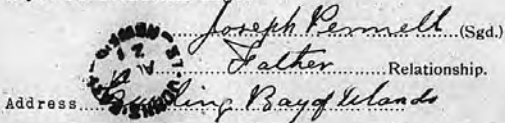 Joseph Pennell (Sgd.)
Father Relationship.
Address Curling Bay of Islands